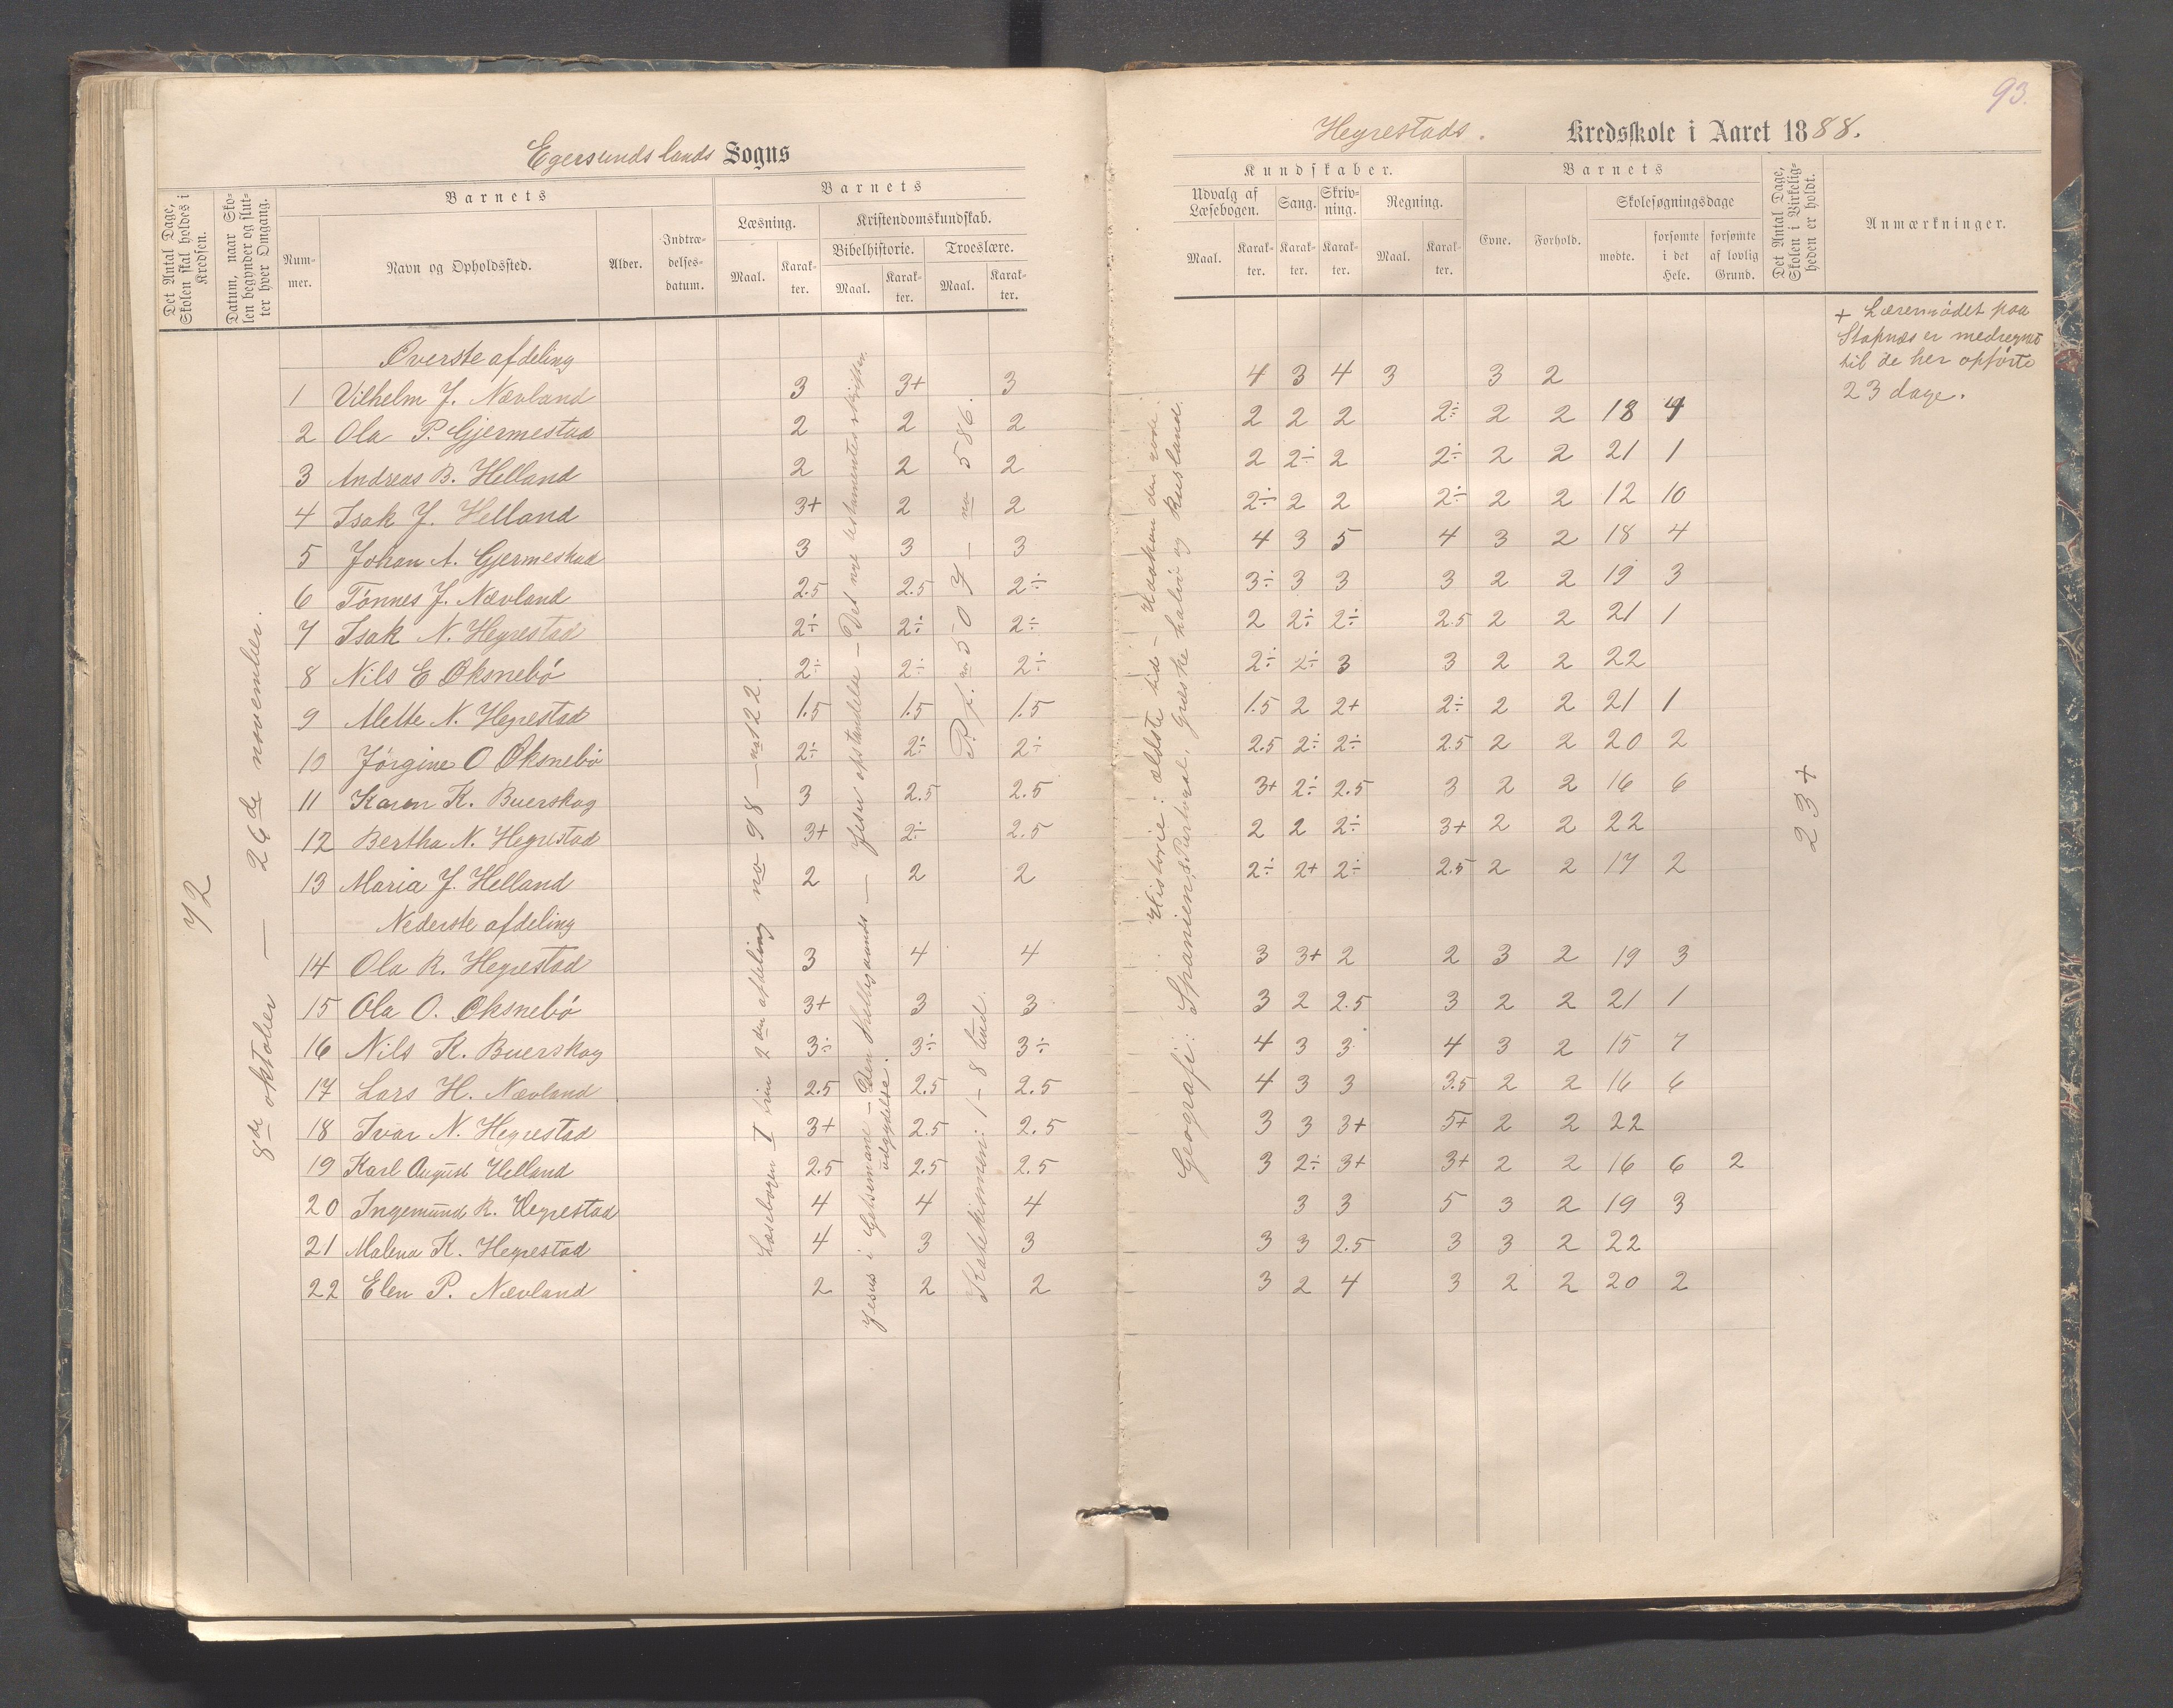 93.
Egersunds lands Sogns
Hegrestads. Kredsskole i Aaret 1888.
Det Antal Dage, Skolen skal holdes i Kredsen.
Datum, naar Skolen begynder og slutter hver Omgang.
Barnets
Nummer.
Navn og Opholdssted.
Alder.
Indtrædelsesdatum.
Barnets
Læsning.
Maal.
Karakter.
Kristendomskundskab.
Bibelhistorie.
Maal.
Karakter.
Troeslære.
Maal.
Karakter.
Kundskaber.
Udvalg af Læsebogen.
Maal.
Karakter.
Sang.
Karakter.
Skrivning.
Karakter.
Regning.
Maal.
Karakter.
Barnets
Evne.
Forhold.
Skolesøgningsdage
mødte.
forsømte i det Hele.
forsømte af lovlig Grund.
Det Antal Dage, Skolen i Virkeligheden er holdt.
Anmærkninger.
+ Læremødet paa
Stapnæs er medregnet
til de her opførte
23 dage.
72
8de oktober — 26de november.
Læsebogen I trin 2den afdeling no 98 — no 122.
Jesu opstandelse — Det nye testamentes skrifter.
Jesus i Getsemane — Den Helligaands — udgydelse.
P. f. no 507 — no 586.
Katekismen: 1 - 8 bud.
Historie: ældste tid — Haakon den gode.
Geografi: Spanien, Portugal, Græske halvø og Rusland.
23+
Øverste afdeling
1 Vilhelm J. Nævland 3 3+ 3 4 3 4 3 3 2
2 Ola P. Gjermestad 2 2 2 2 2 2 2÷ 2 2 18 4
3 Andreas B. Helland 2 2 2 2 2÷ 2 2÷ 2 2 21 1
4 Isak J. Helland 3+ 2 2 2÷ 2 2 2÷ 2 2 12 10
5 Johan A. Gjermestad 3 3 3 4 3 5 4 3 2 18 4
6 Tønnes J. Nævland 2.5 2.5 2÷ 3÷ 3 3 3 2 2 19 3
7 Isak N. Hegrestad 2÷ 2÷ 2÷ 2 2÷ 2÷ 2.5 2 2 21 1
8 Nils E Øksnebø 2÷ 2÷ 2÷ 2÷ 2÷ 3 3 2 2 22
9 Mette N. Hegrestad 1.5 1.5 1.5 1.5 2 2+ 2÷ 2 2 21 1
10 Jørgine O Øksnebø 2÷ 2÷ 2÷ 2.5 2÷ 2÷ 2.5 2 2 20 2
11 Karen K. Buerskog 3 2.5 2.5 3+ 2÷ 2.5 3 2 2 16 6
12 Bertha N. Hegrestad 3+ 2÷ 2.5 2 2 2÷ 3+ 2 2 22
13 Maria J. Helland 2 2 2 2÷ 2+ 2÷ 2.5 2 2 17 2
Nederste afdeling
14 Ola R. Hegrestad 3 4 4 3 3+ 2 2 3 2 19 3
15 Ola O. Øksnebø 3+ 3 3 3 2 2.5 3 2 2 21 1
16 Nils K. Buerskog 3÷ 3÷ 3÷ 4 3 3 4 3 2 15 7
17 Lars H. Nævland 2.5 2.5 2.5 4 3 3 3.5 2 2 16 6
18 Ivar N. Hegrestad 3+ 2.5 2.5 3 3 3+ 5+ 2 2 22
19 Karl August Helland 2.5 2.5 2.5 3 2÷ 3+ 3+ 2 2 16 6 2
20 Ingemund R. Hegrestad 4 4 4 3 3 5 3 2 19 3
21 Malena K. Hegrestad 4 3 3 3 3 2.5 3 3 2 22
22 Elen P. Nævland 2 2 2 3 2 4 3 2 2 20 2